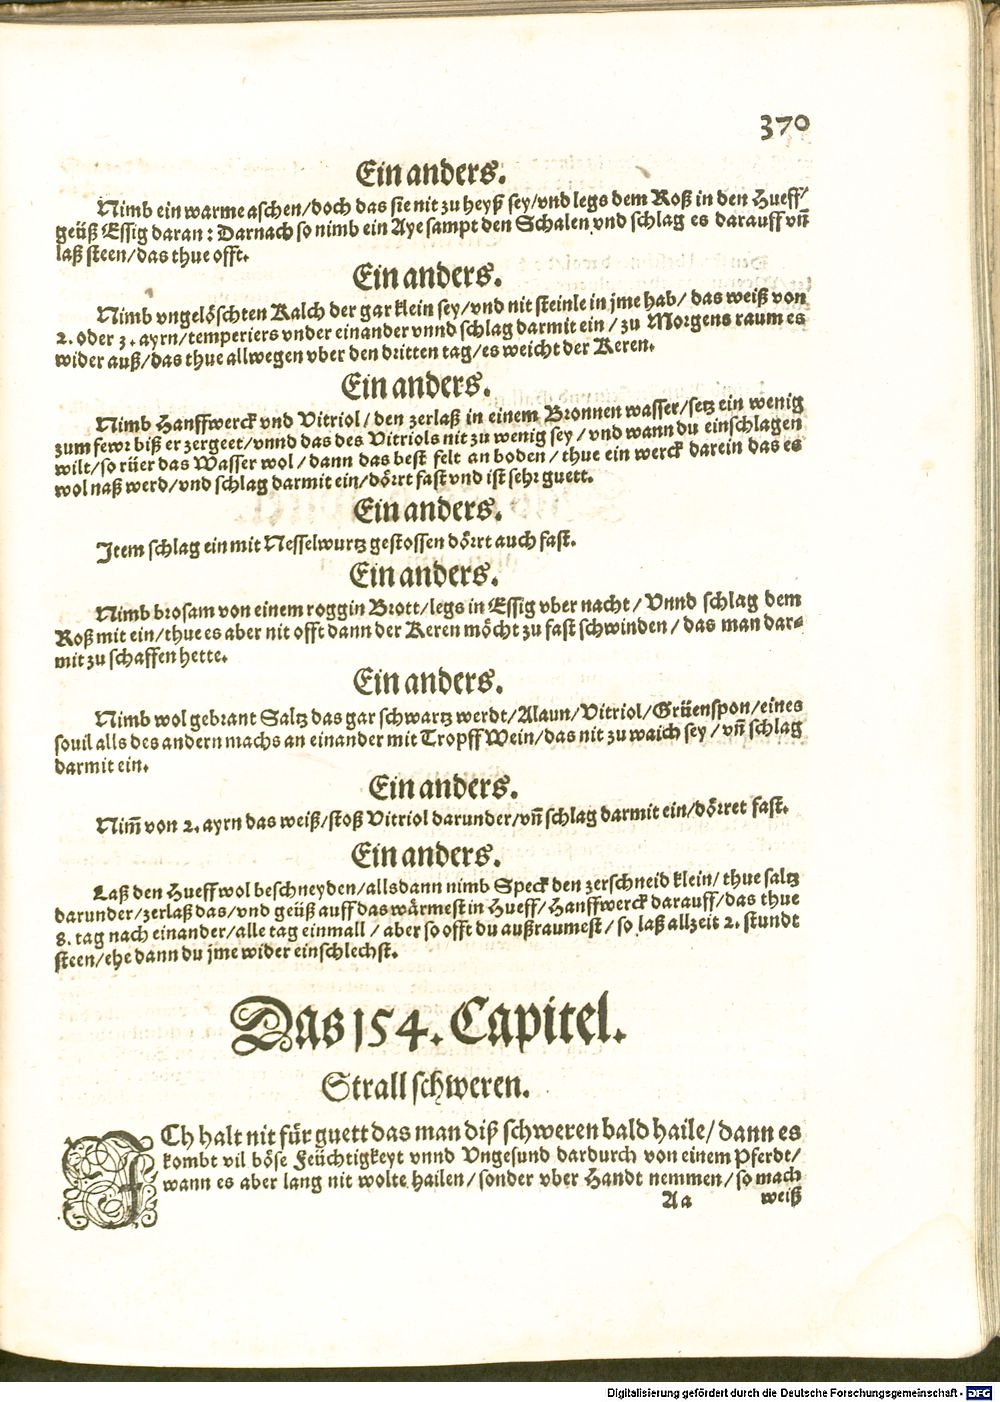 370
Ein anders.
Nimb ein warme aschen/doch das sie nit zu heyß sey/vnd legs dem Roß in den Hueff/
geüß Essig daran: Darnach so nimb ein Aye sampt den Schalen vnd schlag es darauff vñ
laß steen/das thue offt.
Ein anders.
Nimb vngelöschten Kalch der gar klein sey/vnd nit steinle in jme hab/ das weiß von
2. oder 3. ayrn/temperiers vnder einander vnnd schlag darmit ein/ zu Morgens raum es
wider auß/das thue allwegen vber den dritten tag/es weicht der Keren.
Ein anders.
Nimb Hanffwerck vnd Vitriol/ den zerlaß in einem Bronnen wasser/setz ein wenig
zum fewr biß er zergeet/vnnd das des Vitriols nit zu wenig sey/ vnd wann du einschlagen
wilt/so rüer das Wasser wol/ dann das best felt an boden/ thue ein werck darein das es
wol naß werd/vnd schlag darmit ein/dörrt fast vnd ist sehr guett.
Ein anders.
Item schlag ein mit Nesselwurtz gestossen dörrt auch fast.
Ein anders.
Nimb brosam von einem roggin Brott/legs in Essig vber nacht/ Vnnd schlag dem
Roß mit ein/thue es aber nit offt dann der Keren möcht zu fast schwinden/ das man dar-
mit zu schaffen hette.
Ein anders.
Nimb wol gebrant Saltz das gar schwartz werdt/Alaun/Vitriol/Grüenspon/eines
souil alls des andern machs an einander mit Tropff Wein/das nit zu waich sey/vñ schlag
darmit ein.
Ein anders.
Nim̃ von 2. ayrn das weiß/stoß Vitriol darunder/vñ schlag darmit ein/dörret fast.
Ein anders.
Laß den Hueff wol beschneyden/allsdann nimb Speck den zerschneid klein/ thue saltz
darunder/zerlaß das/vnd geüß auff das wärmest in Hueff/ Hanffwerck darauff/das thue
8. tag nach einander/alle tag einmall/ aber so offt du außraumest/ so laß allzeit 2. stundt
steen/ehe dann du jme wider einschlechst.
Das 154. Capitel.
Strall schweren.
ICh halt nit für guett das man diß schweren bald haile/ dann es
kombt vil böse Feüchtigkeyt vnnd Vngesund dardurch von einem Pferdt/
wann es aber lang nit wolte hailen/ sonder vber Handt nemmen/ so mach
Aa weiß
Digitalisierung gefördert durch die Deutsche Forschungsgemeinschaft - DFG